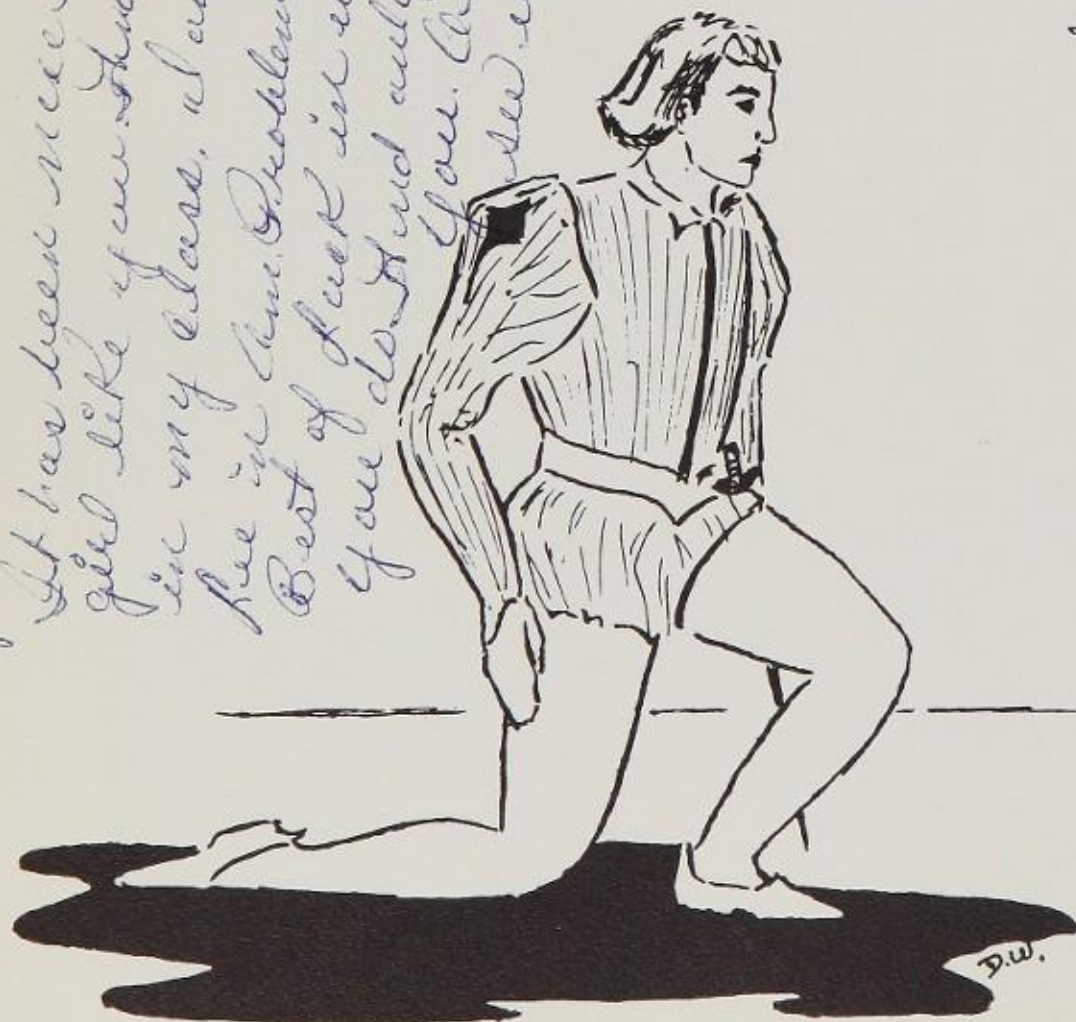 It has been nice
girl like you. Thu
in my class.
be in Am. Problem
Best of Luck in
you do. And
You.
see
D.W.